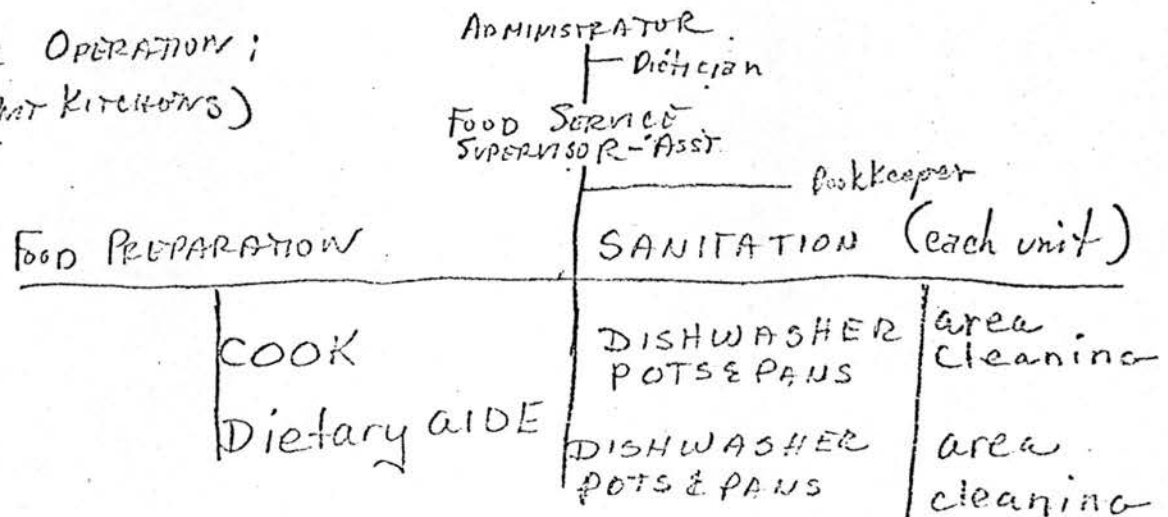 OPERATION;
KITCHENS)
ADMINISTRATOR
Dietician
FOOD SERVICE
SUPERVISOR-ASST.
Bookkeeper
FOOD PREPARATION
SANITATION (each unit)
COOK
Dietary AIDE
DISHWASHER
POTS & PANS
area
cleaning
DISHWASHER
POTS & PANS
area
cleaning